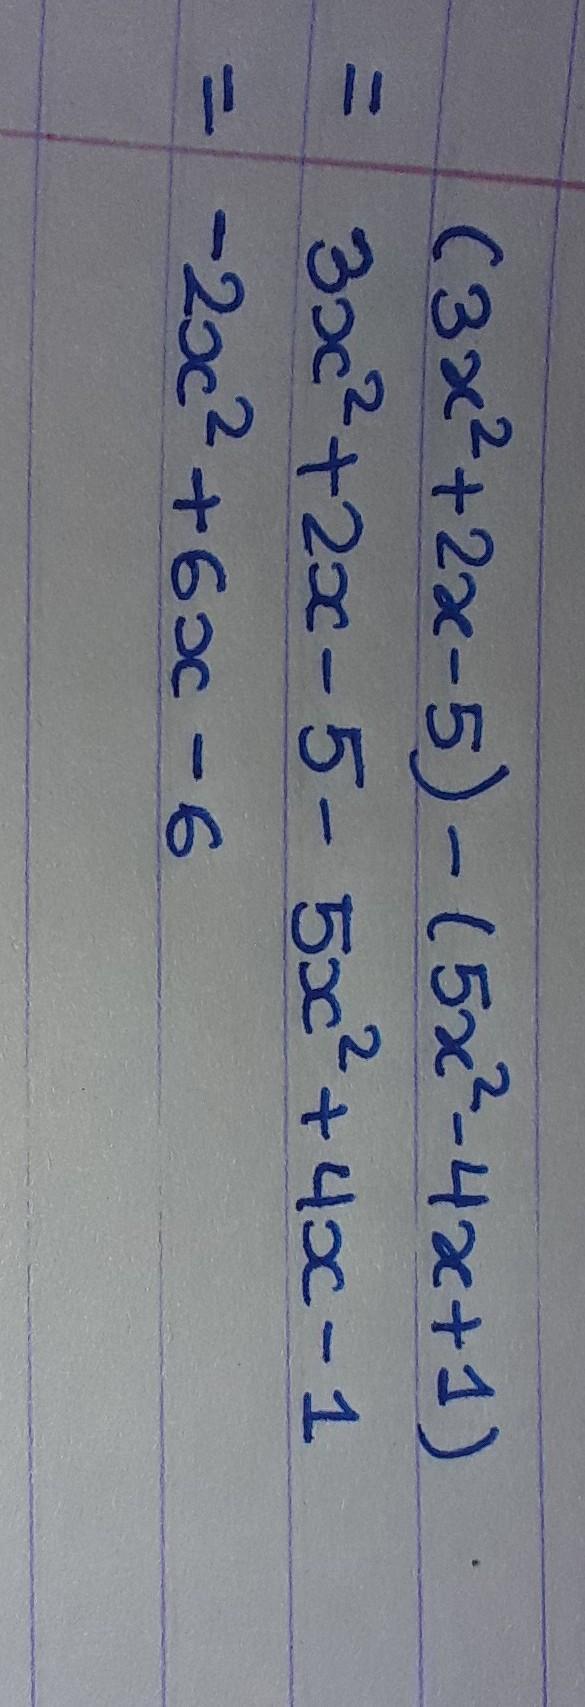 (3x²+2x-5)-(5x²-4x+1)
= 3x²+2x-5-5x²+4x-1
= -2x²+6x-6